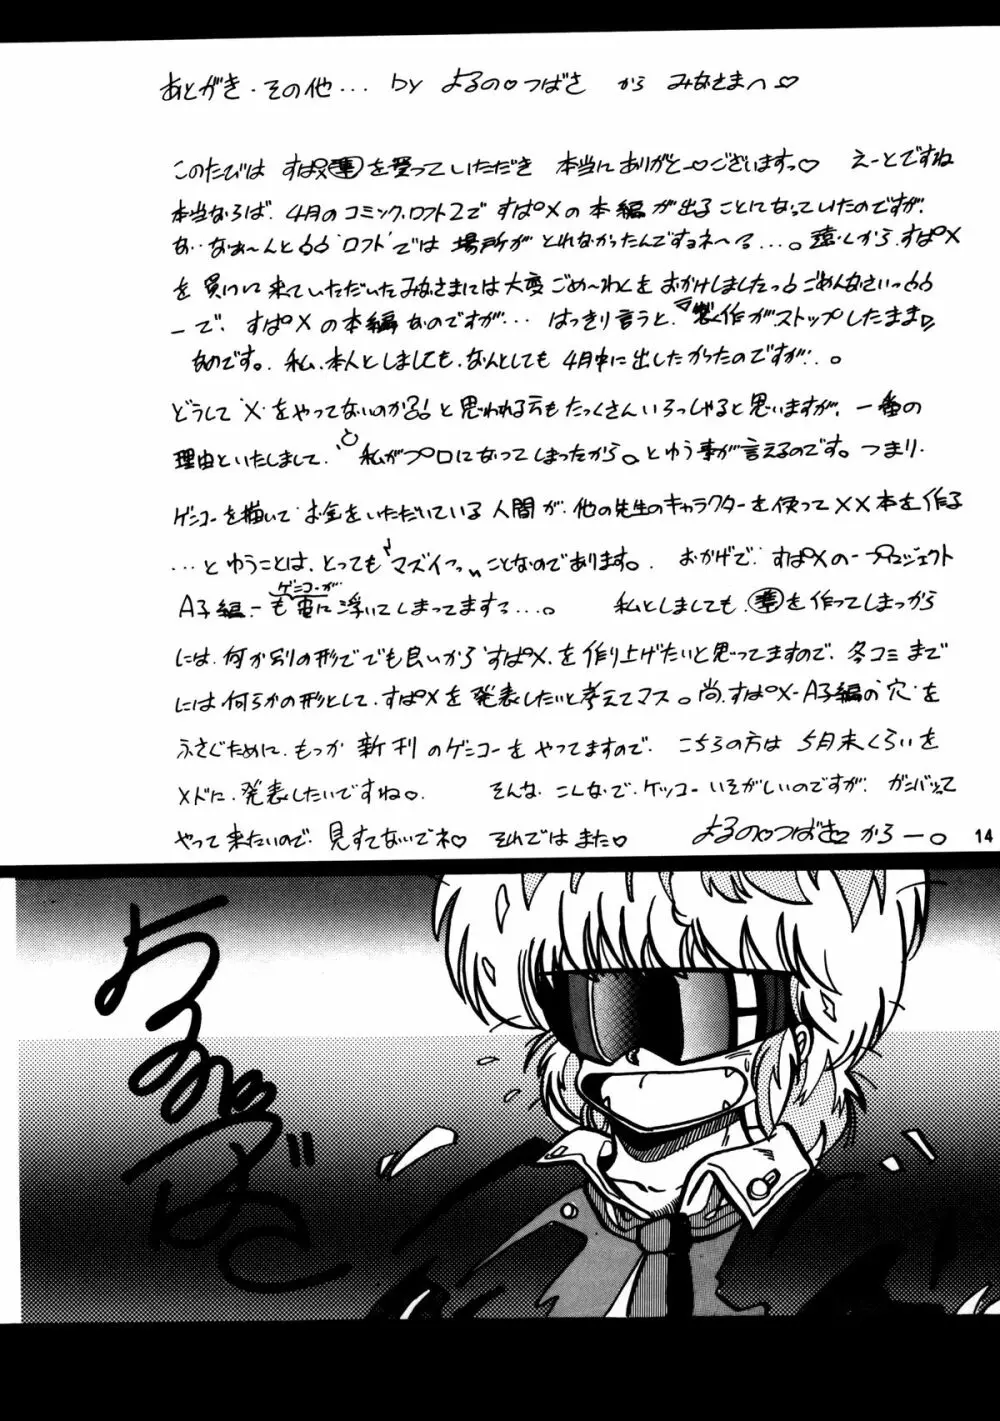 あとがき・その他... by よるの♡つばさ から みなさまへ♡
このたびは すぱX 準 を買っていただき 本当にありがと〜♡ございますっ♡ えーとですね
本当ならば、4月のコミック、ロフト2で すぱXの本編が出ることになっていたのですが、
な…なぁ〜んと 'ロフト'では 場所が とれなかったんですョネ〜...。遠くから、すぱX
を買いに来ていただいたみなさまには大変ごめ〜わくを おかけしましたっ ごめんなさいっ
―で、すぱXの本編なのですが... はっきり言うと、製作がストップしたまま
なのです。私、本人としましても、なんとしても 4月中に出したかったのですが…。
どうして"X"をやってないのか?! と思われる方もたっくさんいらっしゃると思いますが、一番の
理由といたしまして、私がプロになってしまったから。とゆう事が言えるのです。つまり、
ゲンコーを描いて お金をいただいている人間が、他の先生のキャラクターを使って××本を作る
...とゆうことは、とっても"マズイっ"ことなのであります。 おかげで、すぱXの―プロジェクト
A子編―もゲンコーが宙に浮いてしまってますて...。 私としましても、準を作ってしまっから
には、何か別の形ででも良いから'すぱX'を作り上げたいと思ってますので、冬コミまで
には何らかの形として、すぱXを発表したいと考えてマス。尚、すぱX-A子編の'穴'を
ふさぐために、もっか 新刊のゲンコーをやってますので、こちらの方は 5月末くらいを
メドに、発表したいですね。 そんな こんなで、ケッコー いそがしいのですが、ガンバって
やって来たいので、見すてないでネ♡ それでは また♡ よるの♡つばさ から―。
14
よるの
つばさ